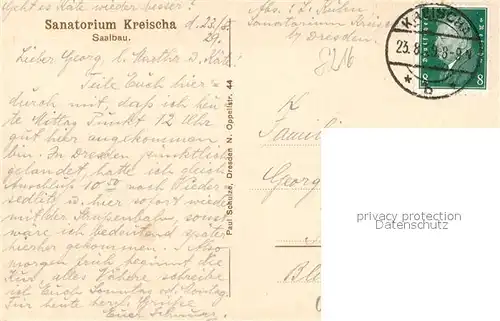 Geht es Käte wieder besser?
Sanatorium Kreischa
Saalbau.
d. 23/8 29.
Lieber Georg, l. Martha u. Käte!
Teile Euch hier=
durch mit, daß ich heu
te Mittag Punkt 12 Uhr
gut hier angekommen
bin. In Dresden pünktlich
gelandet, hatte ich gleich
Anschluß 10 50 nach Nieder
sedlitz u. hier sofort wieder
mit der Straßenbahn, sonst
wäre ich bedeutend später
hierher gekommen. Also
morgen früh beginnt die
Kur, alles Nähere schreibe
ich Euch Sonntag od. Montag
Für heute herzl. Grüße
Euer
Paul Schulze, Dresden N. Oppellstr. 44
Abs.:
Sanatorium Kreischa
bei Dresden.
KREISCHA
23.8.29.8-9
* b
8 8
Familie
Georg
privacy protection
Datenschutz